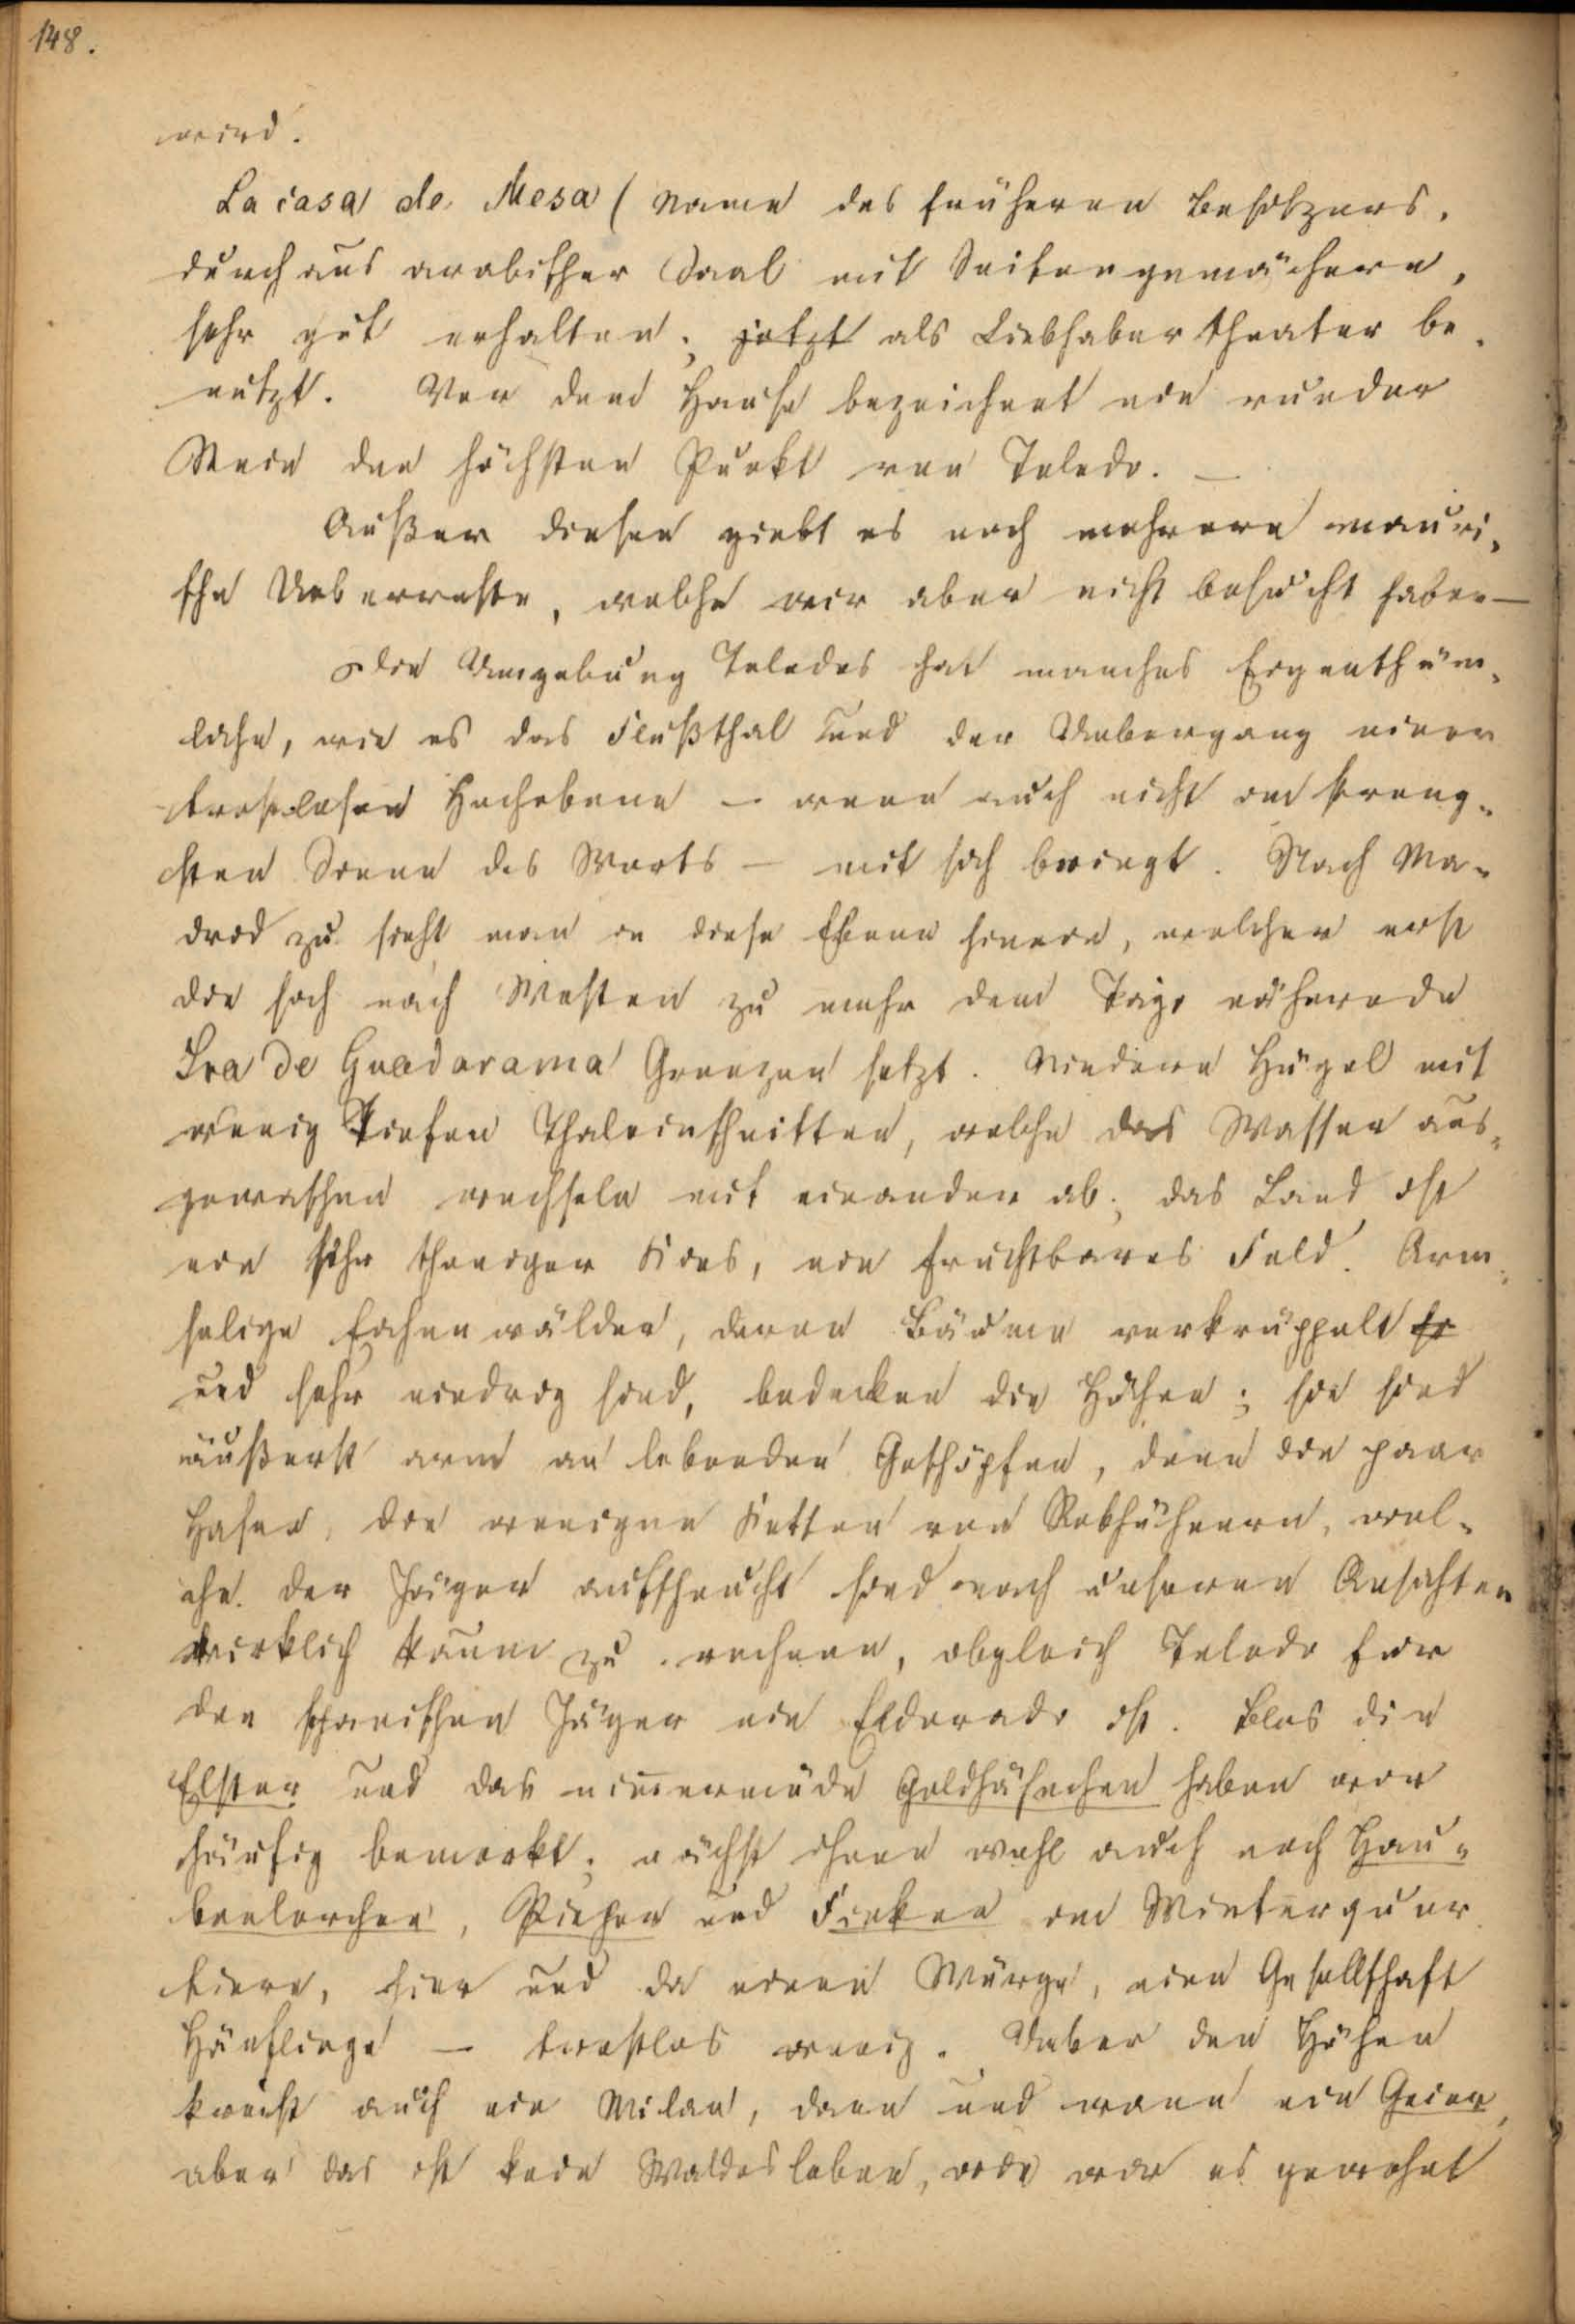 148.
wird.
La casa de Mesa (Name des früheren Besitzers,
durchaus arabischer Saal mit Seitengemächern,
sehr gut erhalten; jetzt als Liebhabertheater be-
nutzt. Vor dem Hause bezeichnet ein runder
Stein den höchsten Punkt von Toledo. —
Außer diesen giebt es noch mehrere mauri-
sche Ueberreste, welche wir aber nicht besucht haben —
Die Umgebung Toledos hat manches Eigenthüm-
liche, wie es das Flußthal und der Uebergang einer
trostlosen Hochebene — wenn auch nicht im streng-
sten Sinne des Worts — mit sich bringt. Nach Ma-
drid zu sieht man in diese Ebene hinein, welcher erst
die sich nach Westen zu mehr dem Tajo nähernde
Sra de Guadarama Grenzen setzt. Niedere Hügel mit
wenig tiefen Thaleinschnitten, welche das Wasser aus-
gewaschen wechseln mit einander ab; das Land ist
ein sehr thoniger Kies, ein fruchtbares Feld. Arm-
selige Eichenwälder, deren Bäume verkrüppelt
und sehr niedrig sind, bedecken die Höhen; sie sind
äußerst arm an lebenden Geschöpfen, denn die paar
Hasen, die wenigen Ketten von Rebhühnern, wel-
che der Jäger aufscheucht sind nach unseren Ansichten
wirklich kaum zu rechnen, obgleich Toledo für
den spanischen Jäger ein Eldorado ist. Blos die
Elster und das nimmermüde Goldhähnchen haben wir
häufig bemerkt; nächst ihnen wohl auch noch Hau-
benlerchen, Pieper und Finken im Winterquar-
tiere, hier und da einen Würger, eine Gesellschaft
Hänflinge — trostlos wenig. Ueber den Höhen
kreist auch ein Milan, dann und wann ein Geier,
aber das ist kein Waldesleben, wie wir es gewohnt